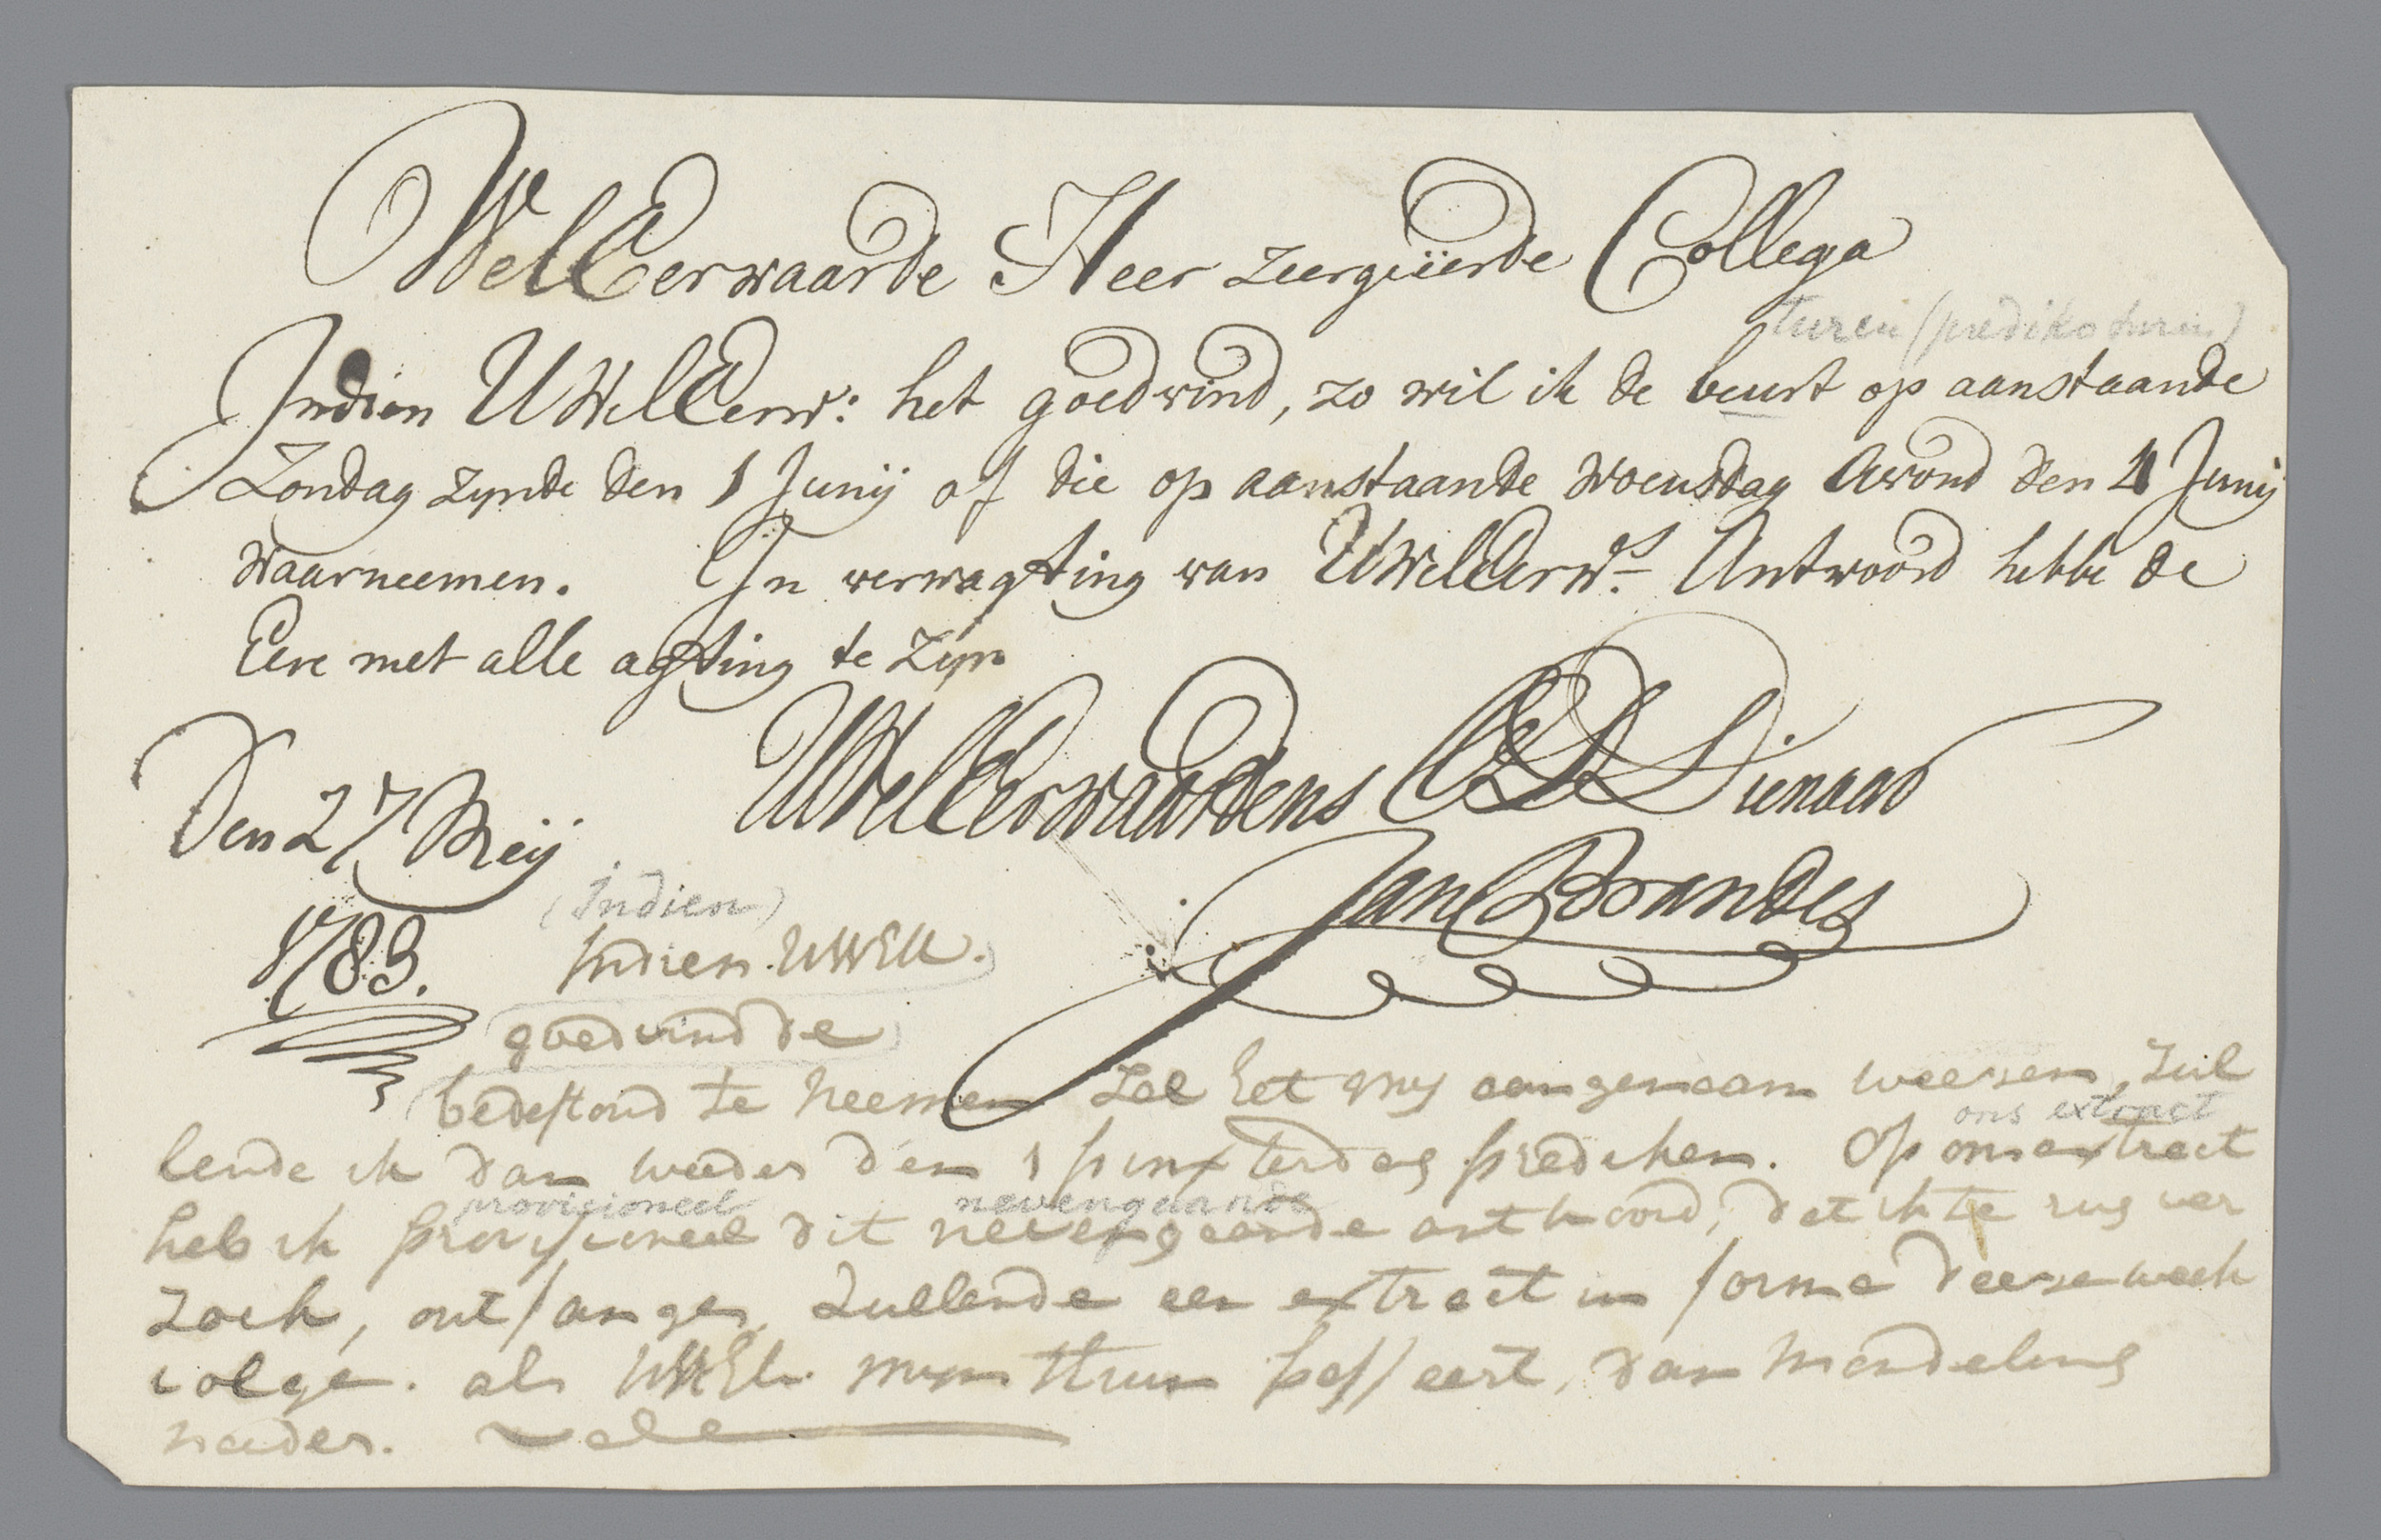 WelEerwaarde Heer zeergeëerde Collega
turen (predikoturen)
Indien UWelEerw: het goedvind, zo wil ik de beurt op aanstaande
Zondag zynde den 1 Junij of die op aanstaande Woensdag Avond den 4 Junij
Waarneemen. In verwagting van UWelEerwds Antwoord hebbe de
Eere met alle agting te zyn
UWelEerwaardens Dienaar
Den 27 Meij
1783.
Jan Brandes
(Indien)
Indien UWEW.
goedvind de
bedestond te neemen zal het my aangenaam weesen, zul
ons extract
lende ik dan weder den 1 pinxterdag prediken. Op ons extract
provisioneel nevengaande
heb ik provisioneel dit nevengaande antwoord, dat ik te rug ver
zoek, ontfangen, zullende een extract in forma deese week
volge. als UWEw. myn thuin passeert, dan mondeling
nader. vale